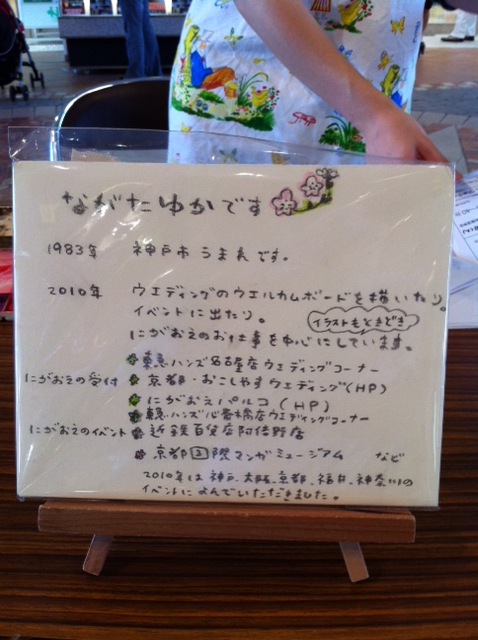 ながたゆかです
1983年 神戸市うまれです。
2010年 ウエディングのウエルカムボードを描いたり。
イベントに出たり。
イラストもときどき
にがおえのお仕事を中心にしています。
東急ハンズ名古屋店ウエディングコーナー
にがおえの受付 京都・おこしやすウエディング(HP)
にがおえパルコ(HP)
東急ハンズ心斎橋店ウエディングコーナー
にがおえのイベント 近鉄百貨店阿倍野店
京都国際マンガミュージアム など
2010年は神戸、大阪、京都、福井、神奈川の
イベントによんでいただきました。